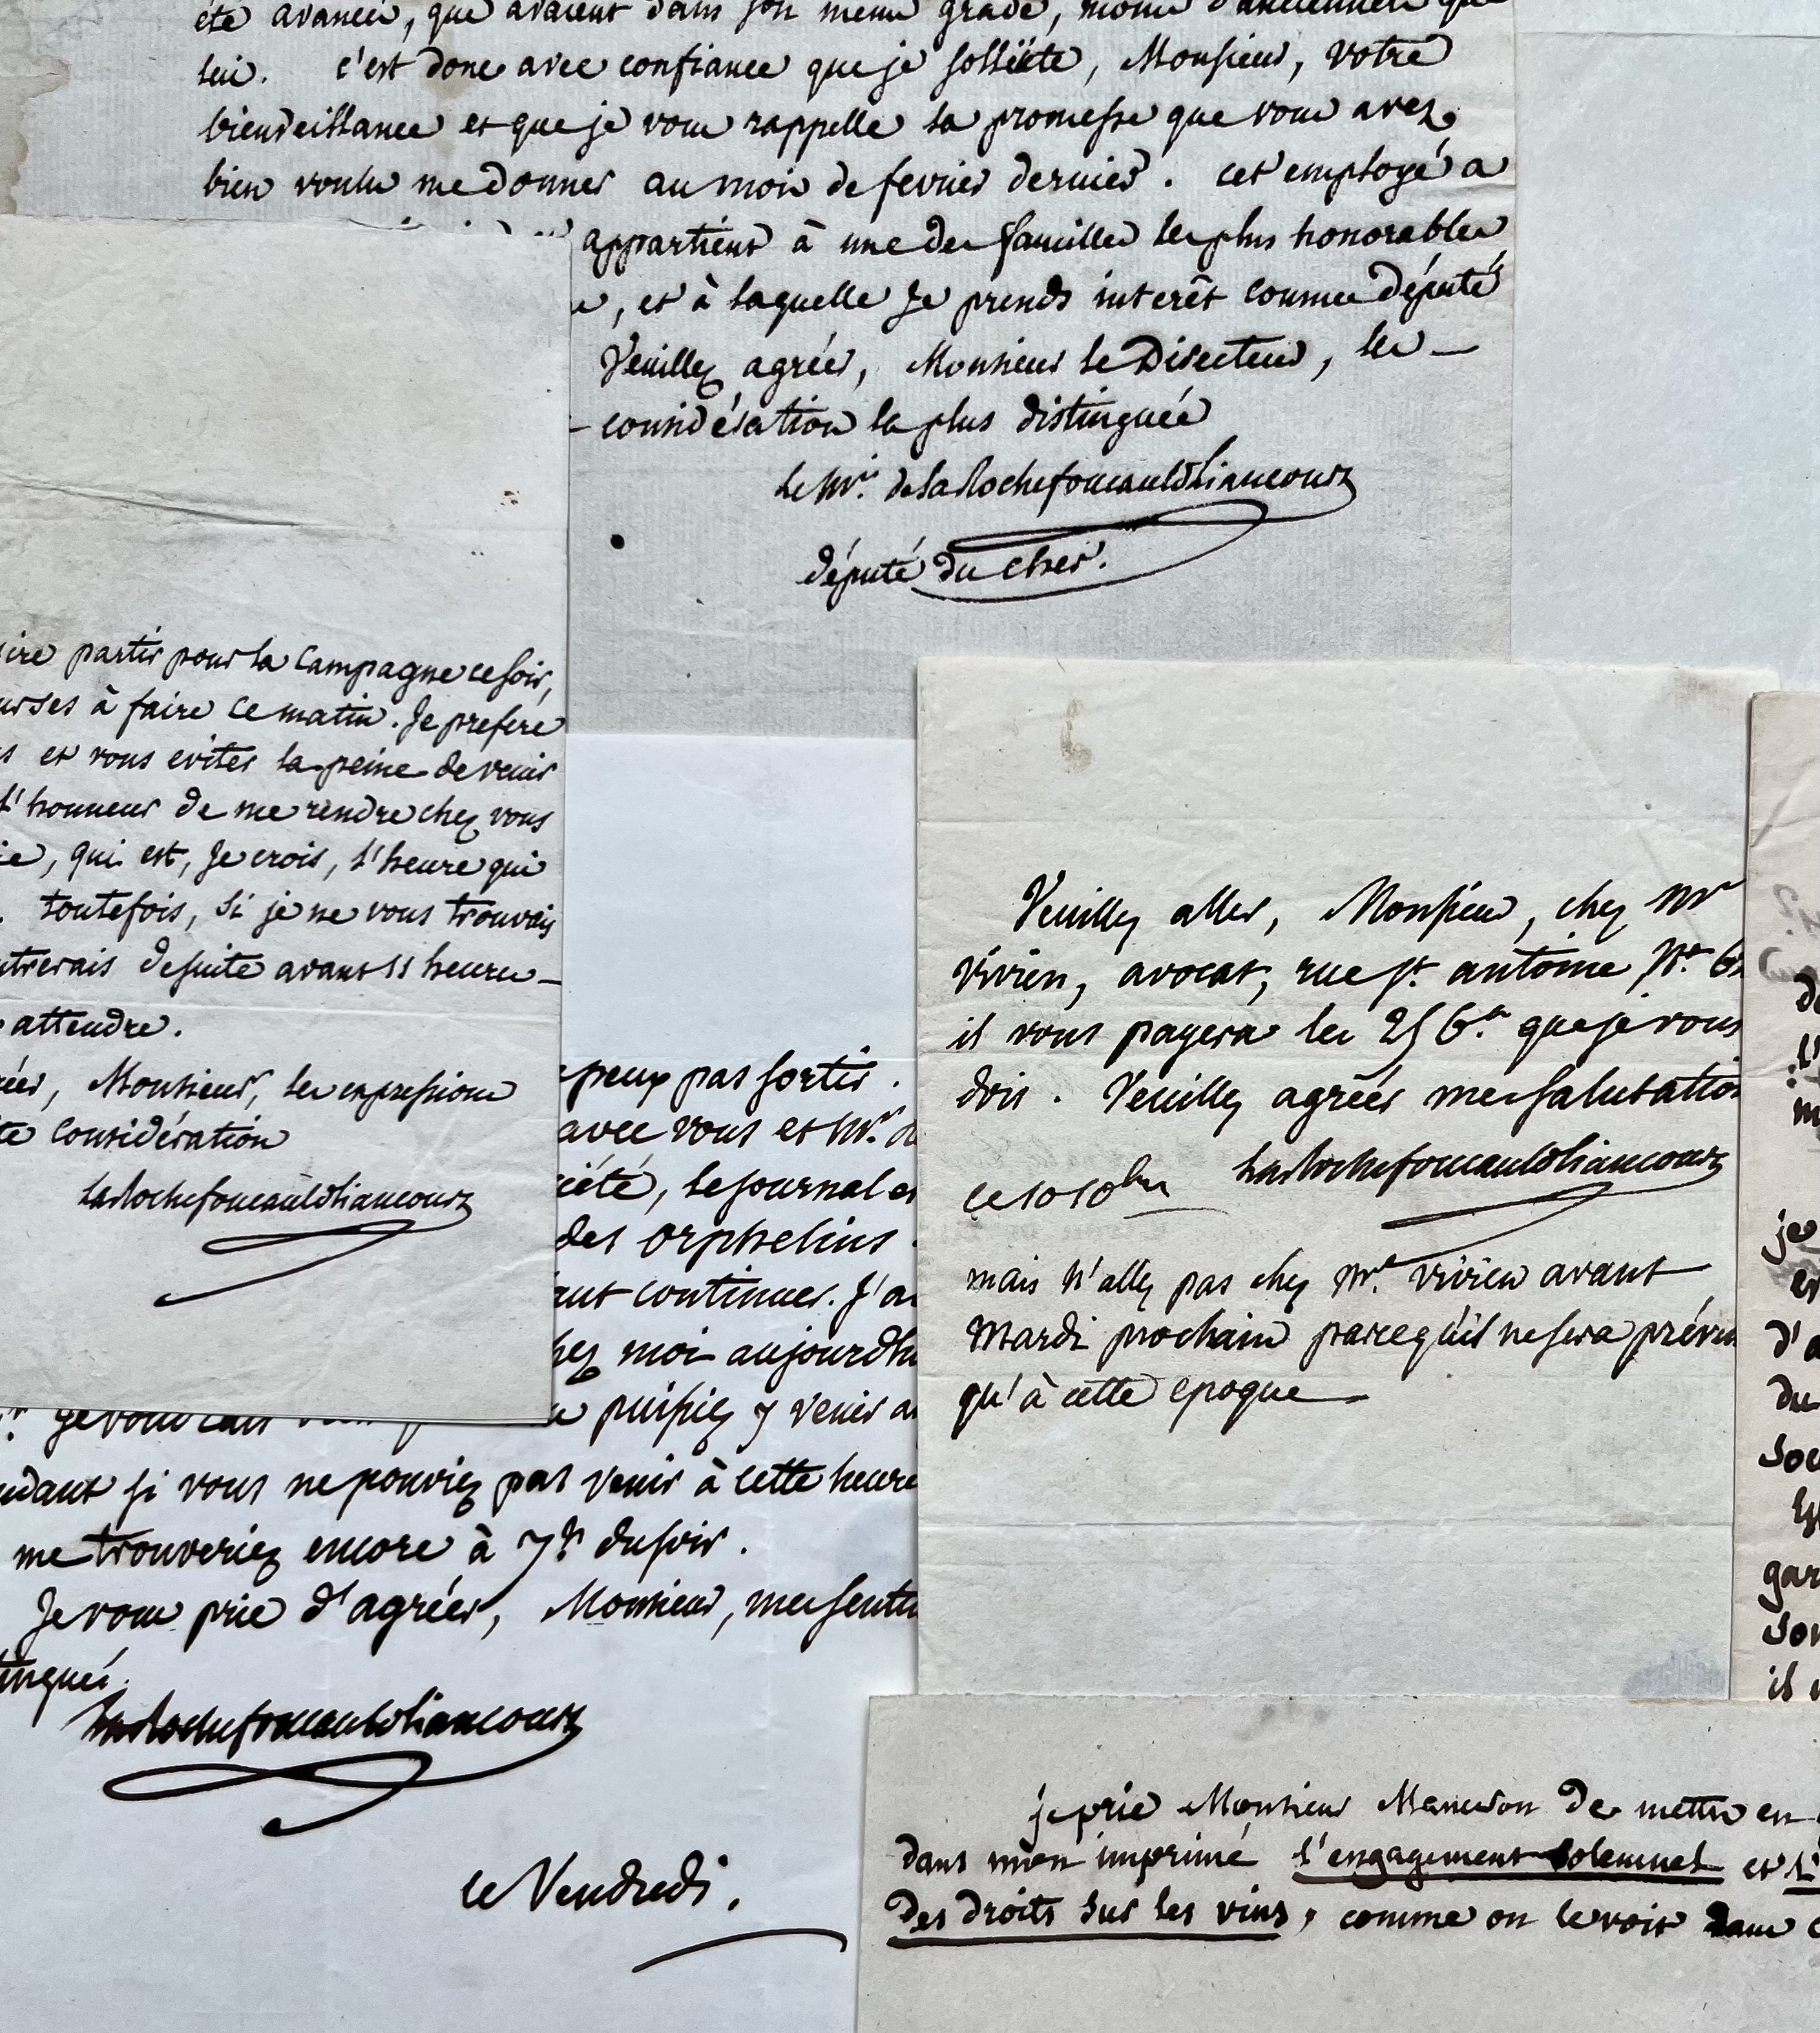 été avancés, que avaient dans son meme grade, moins d'ancienneté que
lui. c'est donc avec confiance que je sollicite, Monsieur, votre
bienveillance et que je vous rappelle la promesse que vous avez
bien voulu me donner au mois de fevrier dernier. cet employé a
appartient à une des familles les plus honorables
, et à laquelle je prends interêt comme député
Veuillez agréer, Monsieur le Directeur, les
considération la plus distinguée
le Mis. de la Rochefoucauld Liancourt
député du cher.
ire partir pour la Campagne ce soir,
urses à faire ce matin. Je prefere
s et vous eviter la peine de venir
l'honneur de me rendre chez vous
ie, qui est, Je crois, l'heure qui
. toutefois, si je ne vous trouvais
ntrerais desuite avant 11 heures
attendre.
éer, Monsieur, les expressions
te considération
LaRochefoucauld Liancourt
peux pas sortir.
avec vous et Mr. d
ciété, le journal et
des orphelins.
aut continuer. J'a
hez moi aujourdhu
puissiez y venir a
ndant si vous ne pouviez pas venir à cette heure
me trouveriez encore à 7h. du soir.
Je vous prie d'agréer, Monsieur, mes senti
tingués.
LaRochefoucauld Liancourt
ce Vendredi.
Veuillez aller, Monsieur, chez Mr
Vivien, avocat, rue St. antoine No. 6
il vous payera les 25 f. que je vous
dois. Veuillez agréer mes salutation
ce 10 10bre LaRochefoucauld Liancourt
mais n'allez pas chez Mr. Vivien avant
Mardi prochain parcequ'il ne sera préven
qu'à cette epoque
de
l'
m
je
et
d'a
du
soc
gar
son
il
je prie Monsieur de mettre en
dans mon imprimé l'engagement solemnel et l'
des droits sur les vins, comme on le voit dans